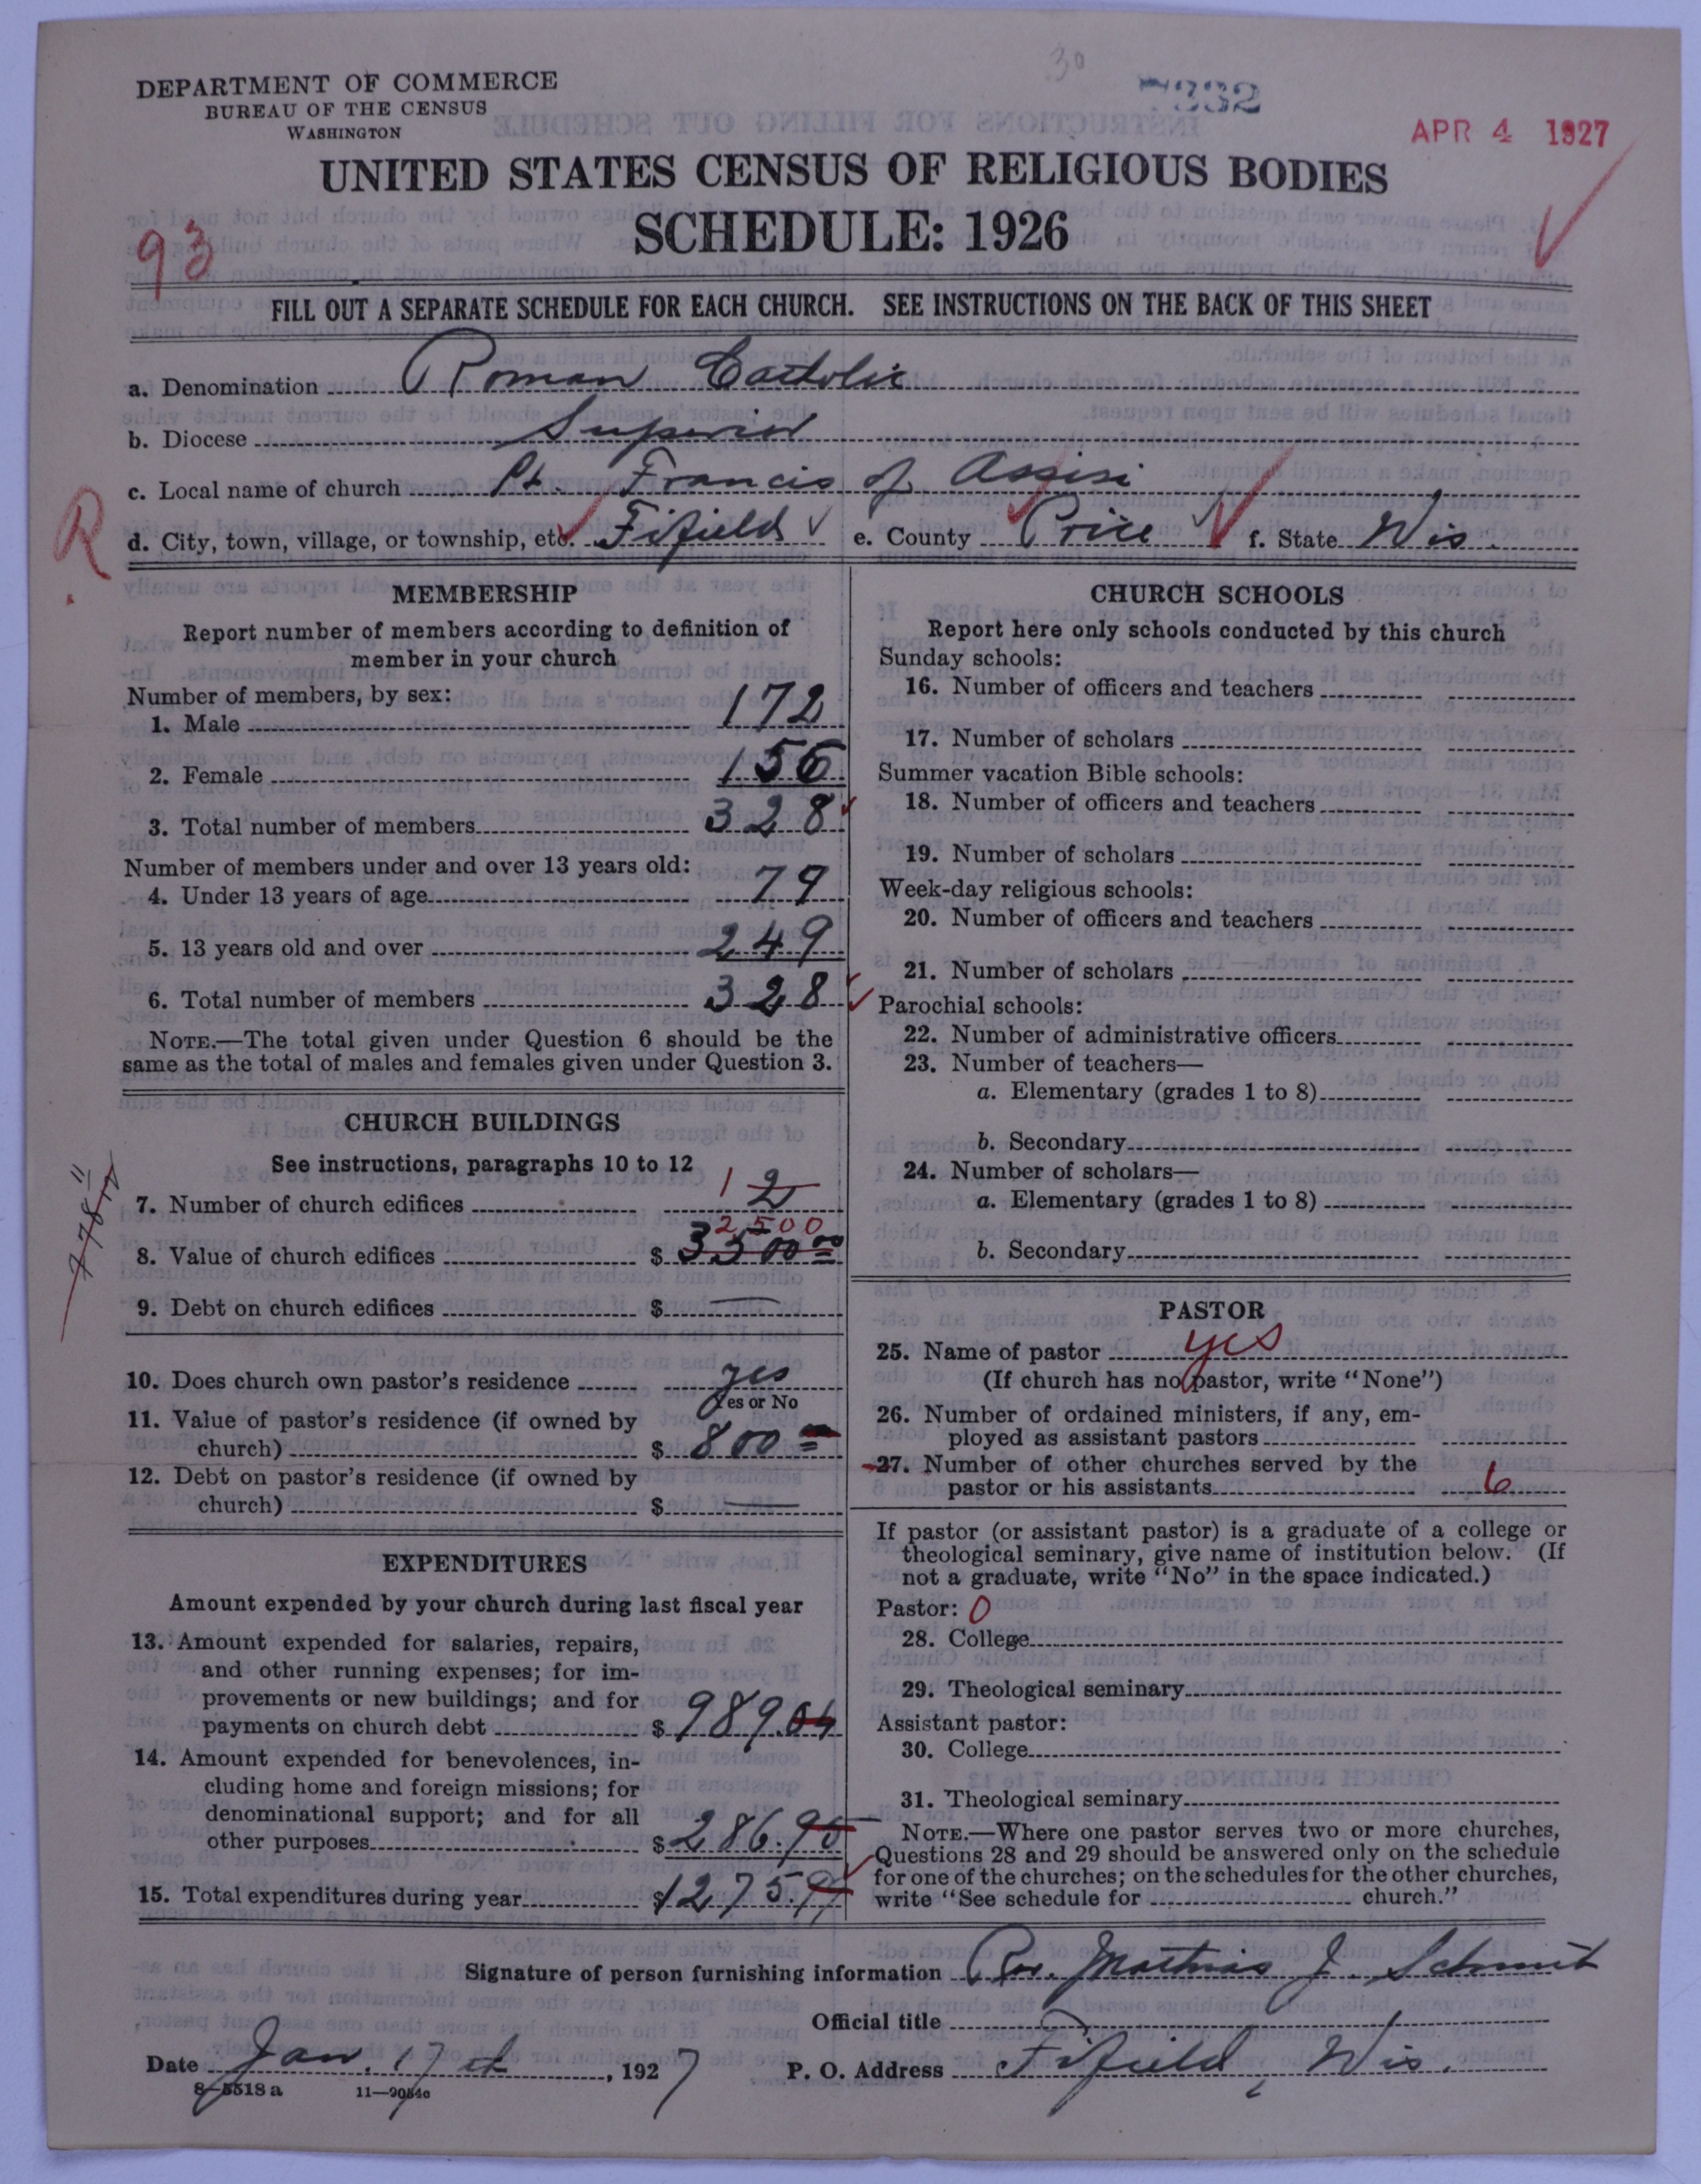 30
7332
DEPARTMENT OF COMMERCE
BUREAU OF THE CENSUS
WASHINGTON
APR 4 1927
UNITED STATES CENSUS OF RELIGIOUS BODIES
SCHEDULE: 1926
93
FILL OUT A SEPARATE SCHEDULE FOR EACH CHURCH. SEE INSTRUCTIONS ON THE BACK OF THIS SHEET
a. Denomination Roman Catholic
b. Diocese Superior
c. Local name of church St. Francis of Assisi
R
d. City, town, village, or township, etc. Fifield e. County Price f. State Wis.
MEMBERSHIP
Report number of members according to definition of
member in your church
Number of members, by sex:
1. Male 172
2. Female 156
3. Total number of members 328
Number of members under and over 13 years old:
4. Under 13 years of age 79
5. 13 years old and over 249
6. Total number of members 328
NOTE.—The total given under Question 6 should be the
same as the total of males and females given under Question 3.
CHURCH BUILDINGS
See instructions, paragraphs 10 to 12
7. Number of church edifices 1 2
2500
8. Value of church edifices $ 3500 00
9. Debt on church edifices $ —
10. Does church own pastor's residence yes
Yes or No
11. Value of pastor's residence (if owned by
church) $ 800
12. Debt on pastor's residence (if owned by
church) $ —
EXPENDITURES
Amount expended by your church during last fiscal year
13. Amount expended for salaries, repairs,
and other running expenses; for im-
provements or new buildings; and for
payments on church debt $ 989.04
14. Amount expended for benevolences, in-
cluding home and foreign missions; for
denominational support; and for all
other purposes $ 286.95
15. Total expenditures during year $1275.99
CHURCH SCHOOLS
Report here only schools conducted by this church
Sunday schools:
16. Number of officers and teachers
17. Number of scholars
Summer vacation Bible schools:
18. Number of officers and teachers
19. Number of scholars
Week-day religious schools:
20. Number of officers and teachers
21. Number of scholars
Parochial schools:
22. Number of administrative officers
23. Number of teachers—
a. Elementary (grades 1 to 8)
b. Secondary
24. Number of scholars—
a. Elementary (grades 1 to 8)
b. Secondary
PASTOR
25. Name of pastor yes
(If church has no pastor, write "None")
26. Number of ordained ministers, if any, em-
ployed as assistant pastors
27. Number of other churches served by the
pastor or his assistants 6
If pastor (or assistant pastor) is a graduate of a college or
theological seminary, give name of institution below. (If
not a graduate, write "No" in the space indicated.)
Pastor: 0
28. College
29. Theological seminary
Assistant pastor:
30. College
31. Theological seminary
NOTE.—Where one pastor serves two or more churches,
Questions 28 and 29 should be answered only on the schedule
for one of the churches; on the schedules for the other churches,
write "See schedule for church."
Signature of person furnishing information Rev. Mathias J. Schmit
Official title
Date Jan. 17th, 1927 P. O. Address Fifield, Wis.
8—5518 a 11—9054c